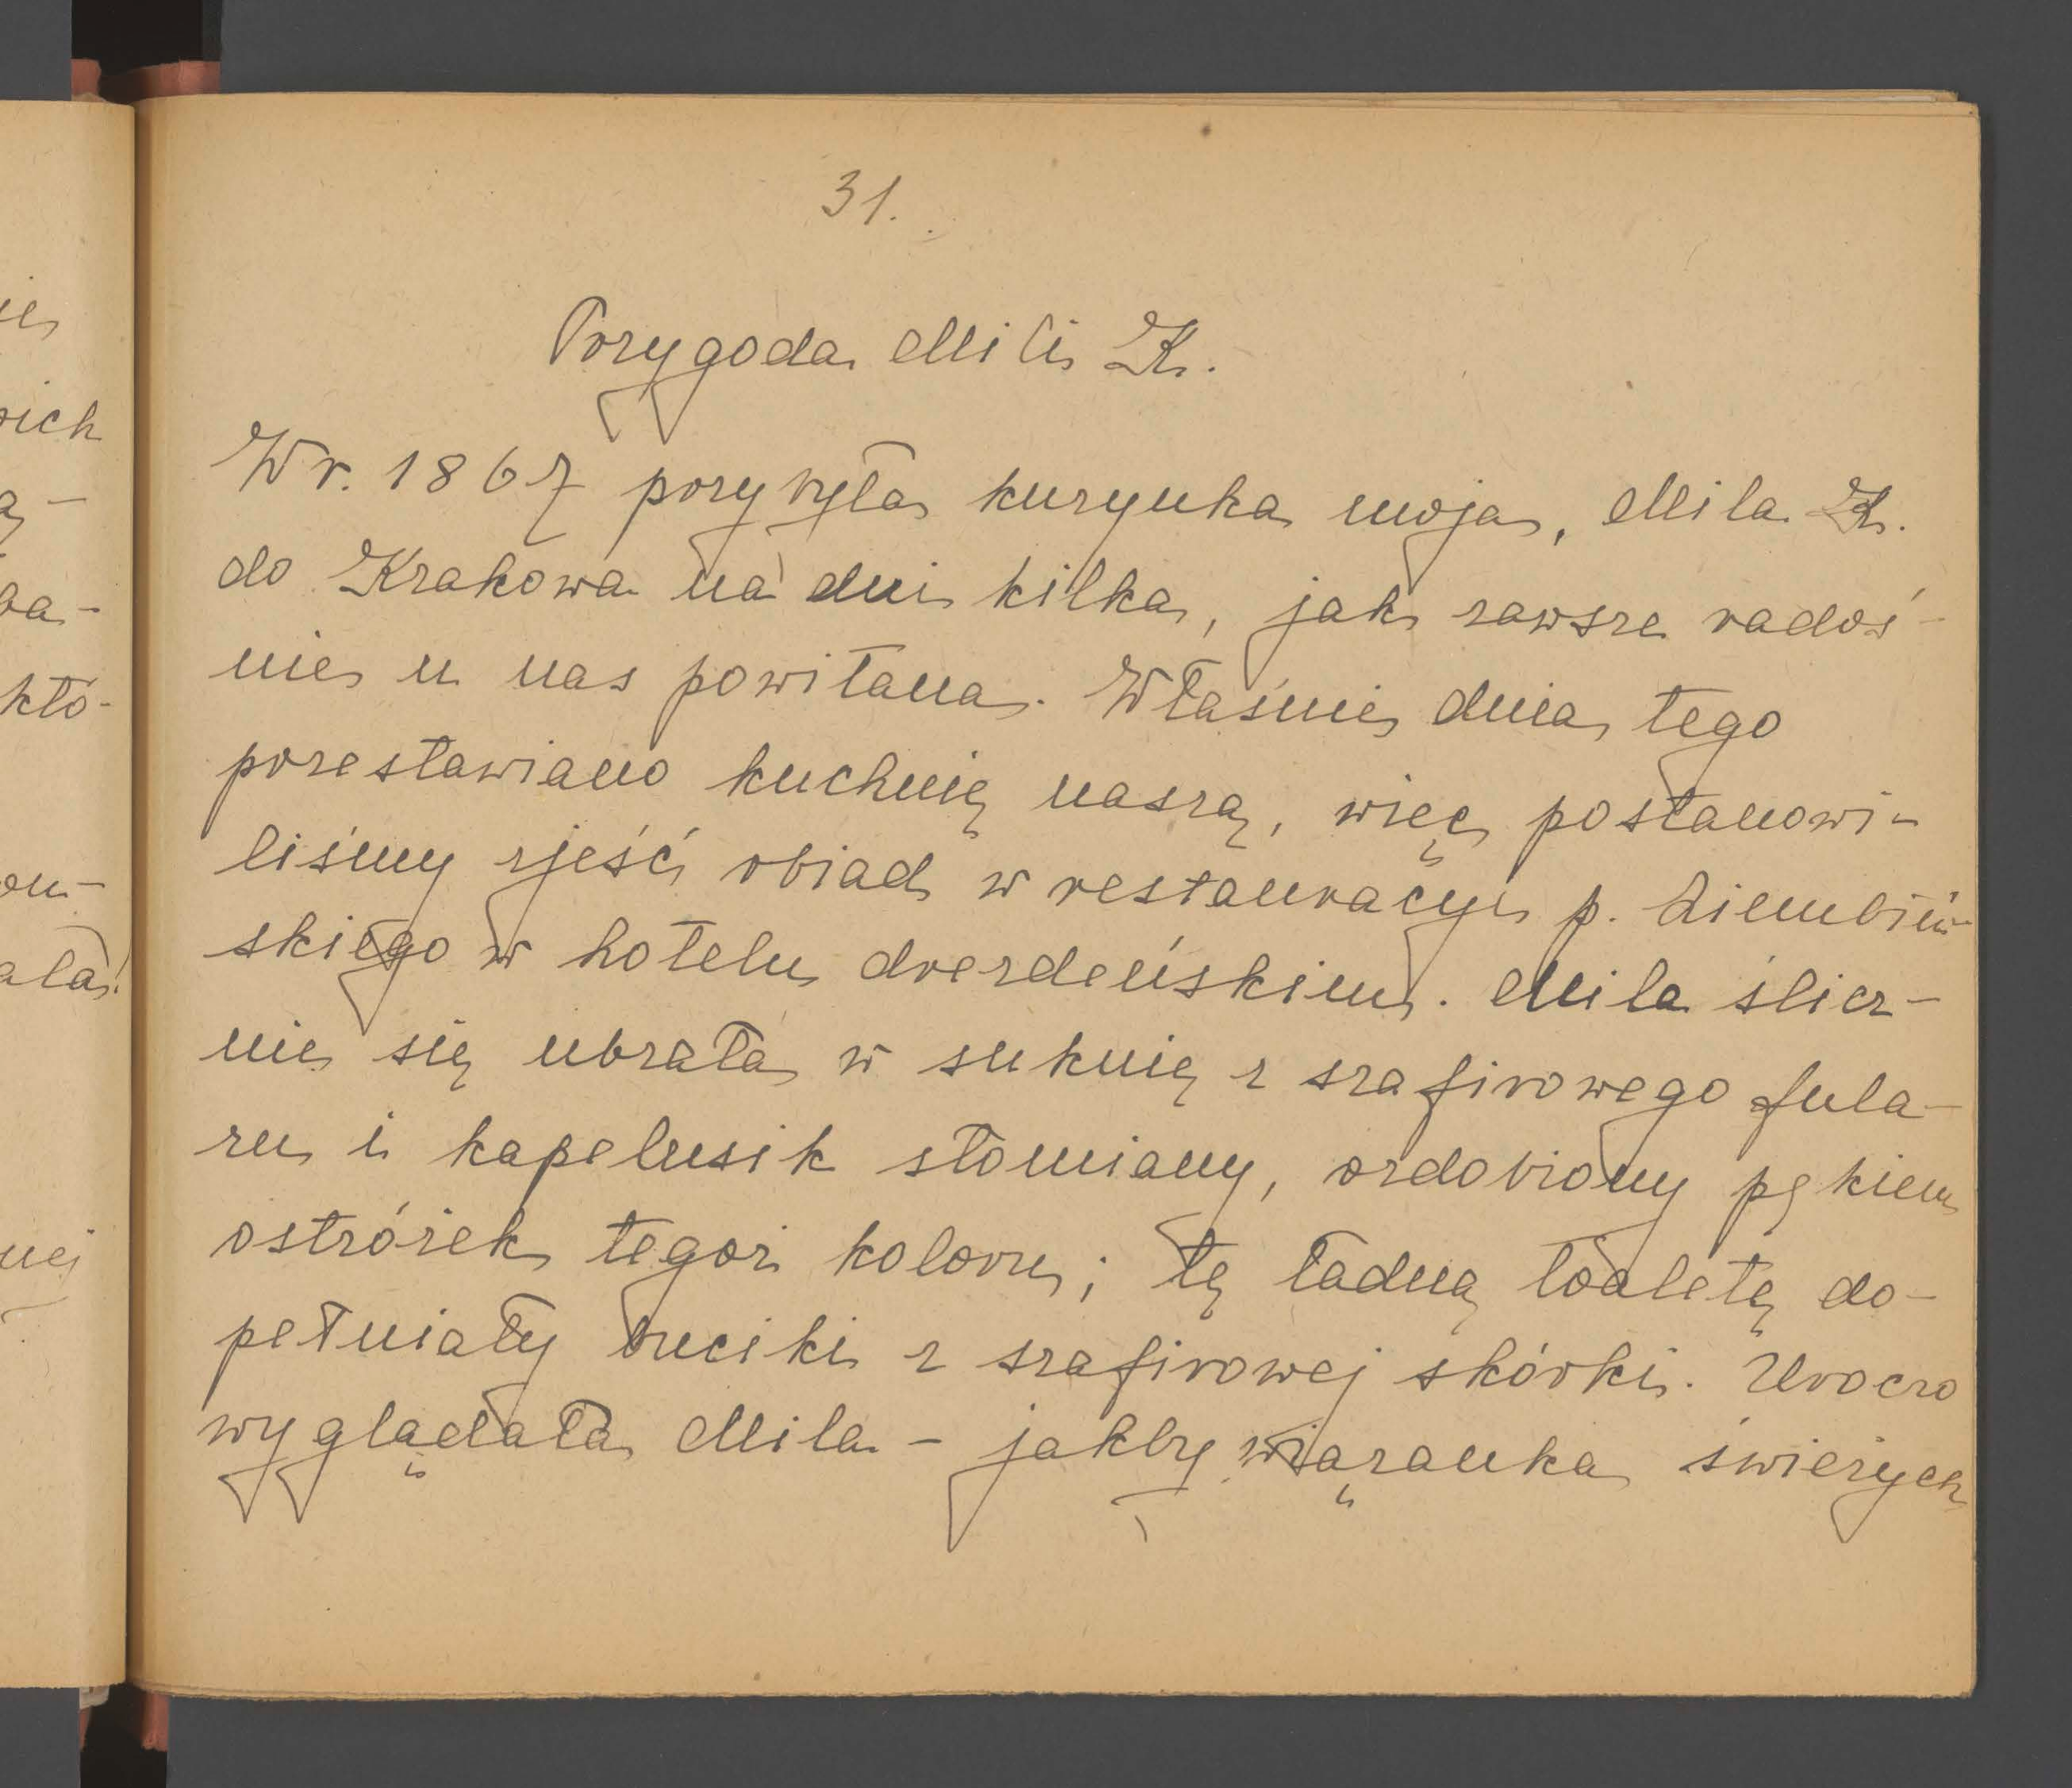 31.
Przygoda Mili K.
W r. 1867 przybyła kuzynka moja, Mila K.
do Krakowa na dni kilka, jak zawsze radoś-
nie u nas powitana. Właśnie dnia tego
przestawiano kuchnię naszą, więc postanowi-
liśmy zjeść obiad w restauracyi p. Ziembiń-
skiego w hotelu drezdeńskim. Mila ślicz-
nie się ubrała w suknię z szafirowego fula-
ru i kapelusik słomiany, ozdobiony pękiem
ostróżek tegoż koloru; tę ładną toaletę do-
pełniały buciki z szafirowej skórki. Uroczo
wyglądała Mila - jakby wiązanka świeżych